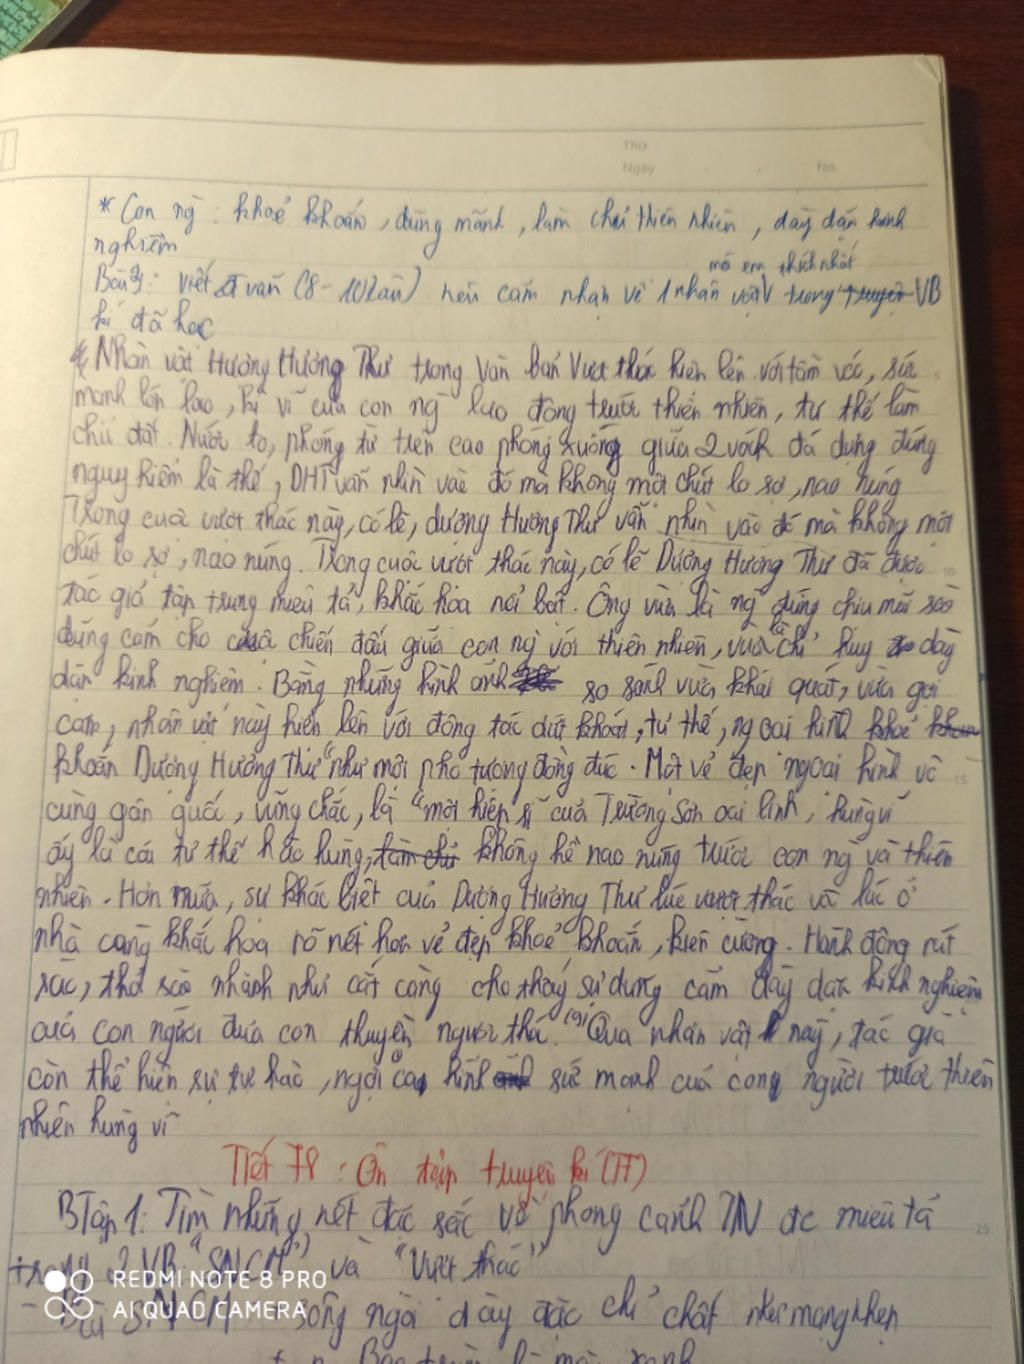 Thứ
Ngày No.
* Con ng̀: khoẻ khoắn, dũng mãnh, làm chủ thiên nhiên, dày dặn kinh
nghiệm
mà em thích nhất
Bài 3: viết đ văn (8-10 câu) nêu cảm nhận về 1 nhân vật trong truyện VB
kí đã học
* Nhân vật Hương Hương Thư trong văn bản Vượt thác hiện lên với tầm vóc, sức
mạnh lớn lao, kì vĩ của con ng̀ lao động trước thiên nhiên, tư thế làm
chủ đất. Nước to, phóng từ trên cao phóng xuống giữa 2 vách đá dựng đứng
nguy hiểm là thế, DHT vẫn nhìn vào đó mà không một chút lo sợ, nao núng
Trong cuộc vượt thác này, có lẽ, dương Hương Thư vẫn nhìn vào đó mà không một
chút lo sợ, nao núng. Trong cuộc vượt thác này, có lẽ Dương Hương Thư đã được
tác giả tập trung miêu tả, khắc họa nổi bật. Ông vừa là ng̀ đứng chịu mũi sào
dũng cảm cho cuộc chiến đấu giữa con ng̀ với thiên nhiên, vừa là chỉ huy dày
dặn kinh nghiệm. Bằng những hình ảnh so sánh vừa khái quát, vừa gợi
cảm, nhân vật này hiện lên với động tác dứt khoát, tư thế, ngoại hình khoẻ
khoắn Dương Hương Thư "như một pho tượng đồng đúc. Một vẻ đẹp ngoại hình vô
cùng gân guốc, vững chắc, là "một hiệp sĩ của Trường Sơn oai linh, hùng vĩ
ấy là cái tư thế hào hùng, làm chủ không hề nao núng trước con ng̀ và thiên
nhiên. Hơn nữa, sự khác biệt của Dương Hương Thư lúc vượt thác và lúc ở
nhà càng khắc họa rõ nét hơn vẻ đẹp khoẻ khoắn, kiên cường. Hành động rút
sào, thả sào nhanh như cắt càng cho thấy sự dũng cảm dày dặn kinh nghiệm
của con người đưa con thuyền ngược thá. (9) Qua nhân vật này, tác giả
còn thể hiện sự tự hào, ngợi ca hình ảnh sức mạnh của cong người trước thiên
nhiên hùng vĩ
Tiết 78: Ôn tập truyện kí (TT)
BTập 1: Tìm những nét đặc sắc về phong cảnh TN đc miêu tả
trong 2 VB "SNCM" và "Vượt thác"
- Bài SNCM sông ngòi dày đặc chi chít như mạng nhện
REDMI NOTE 8 PRO
AI QUAD CAMERA